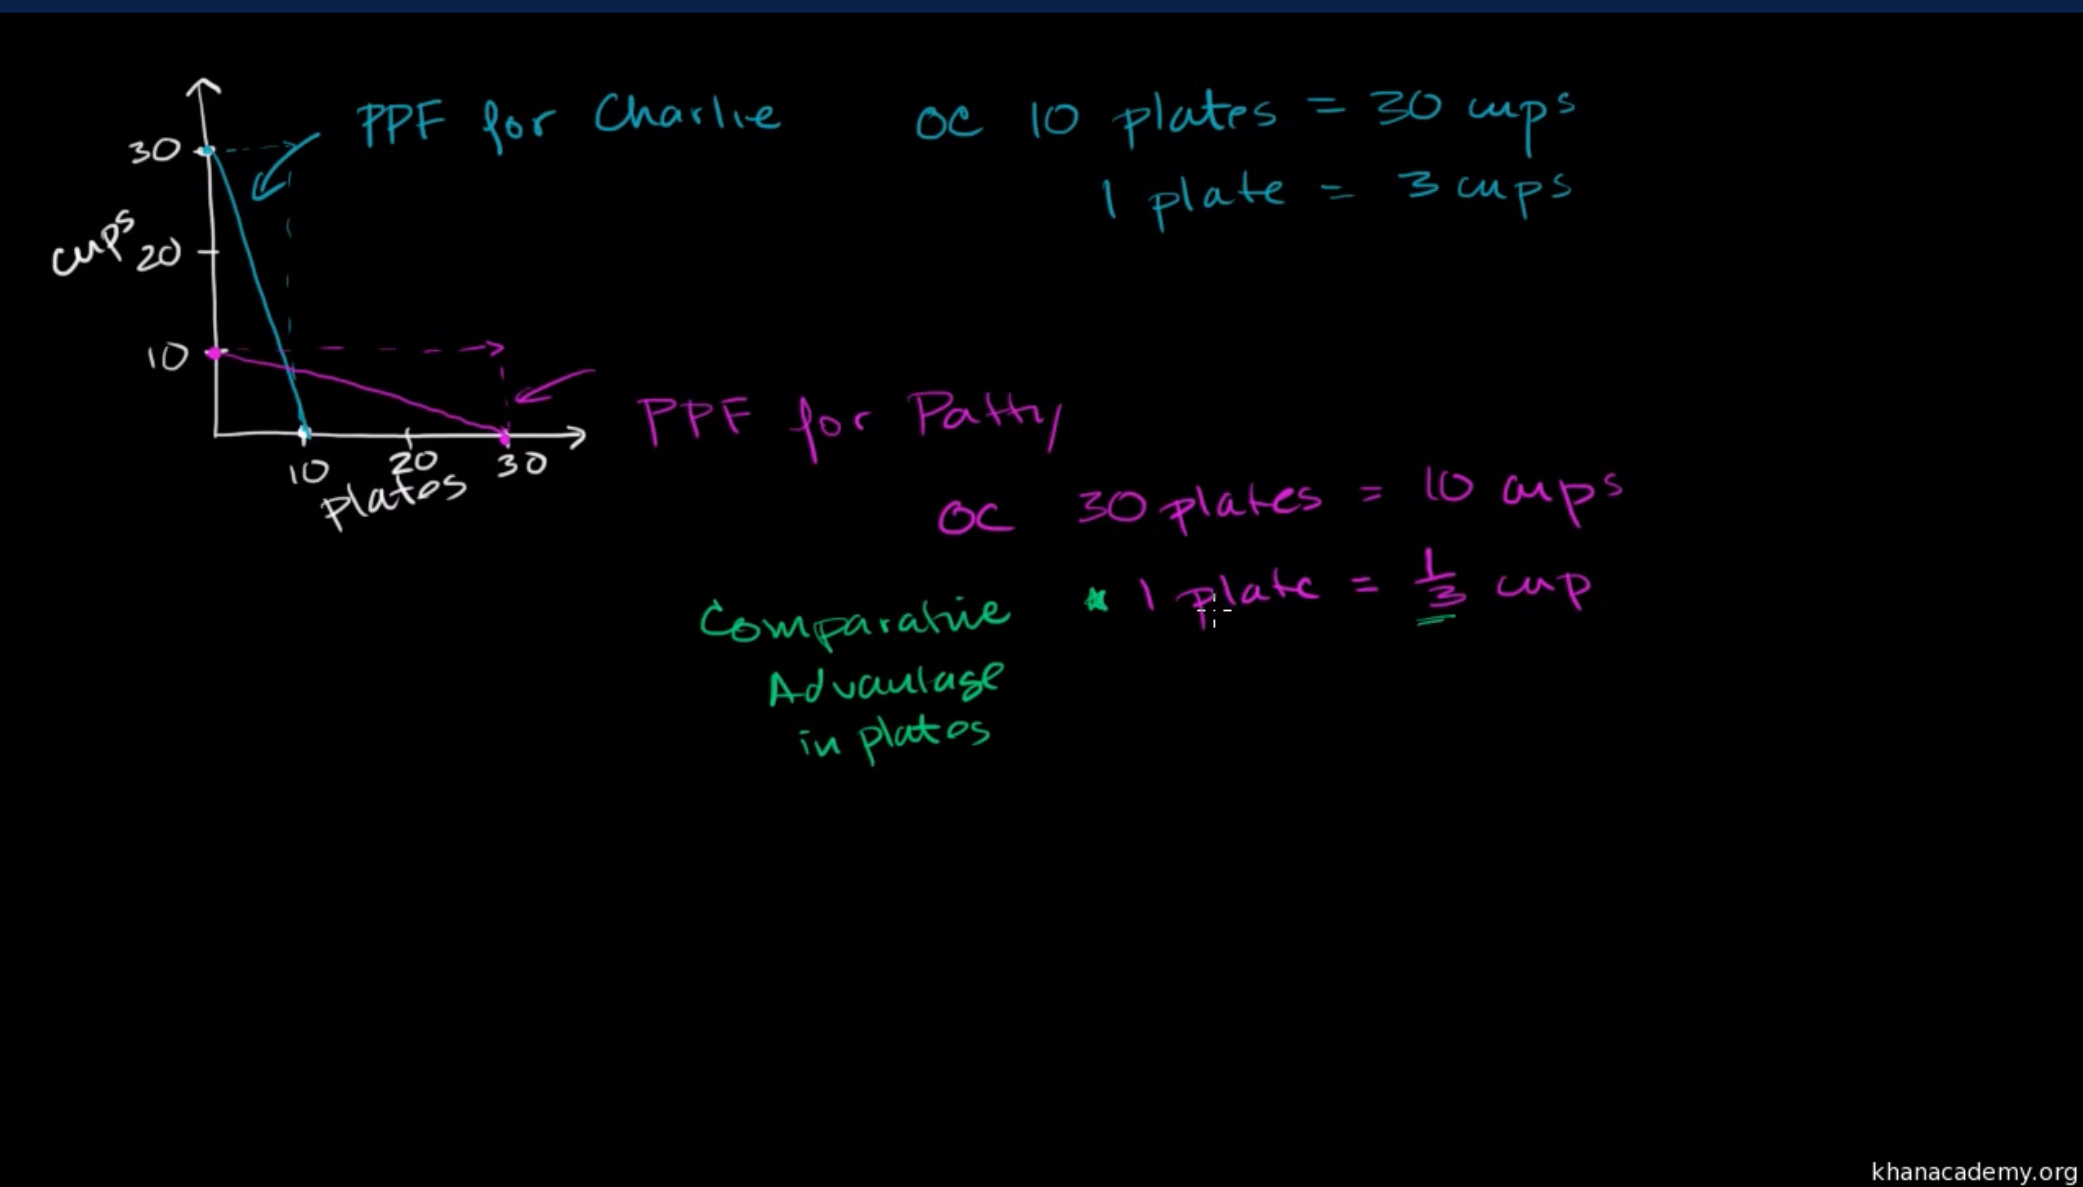 PPF for Charlie
OC 10 plates = 30 cups
1 plate = 3 cups
30
cups
20
10
10
20
30
plates
PPF for Patty
OC 30 plates = 10 cups
Comparative
* 1 plate = 1/3 cup
Advantage
in plates
khanacademy.org